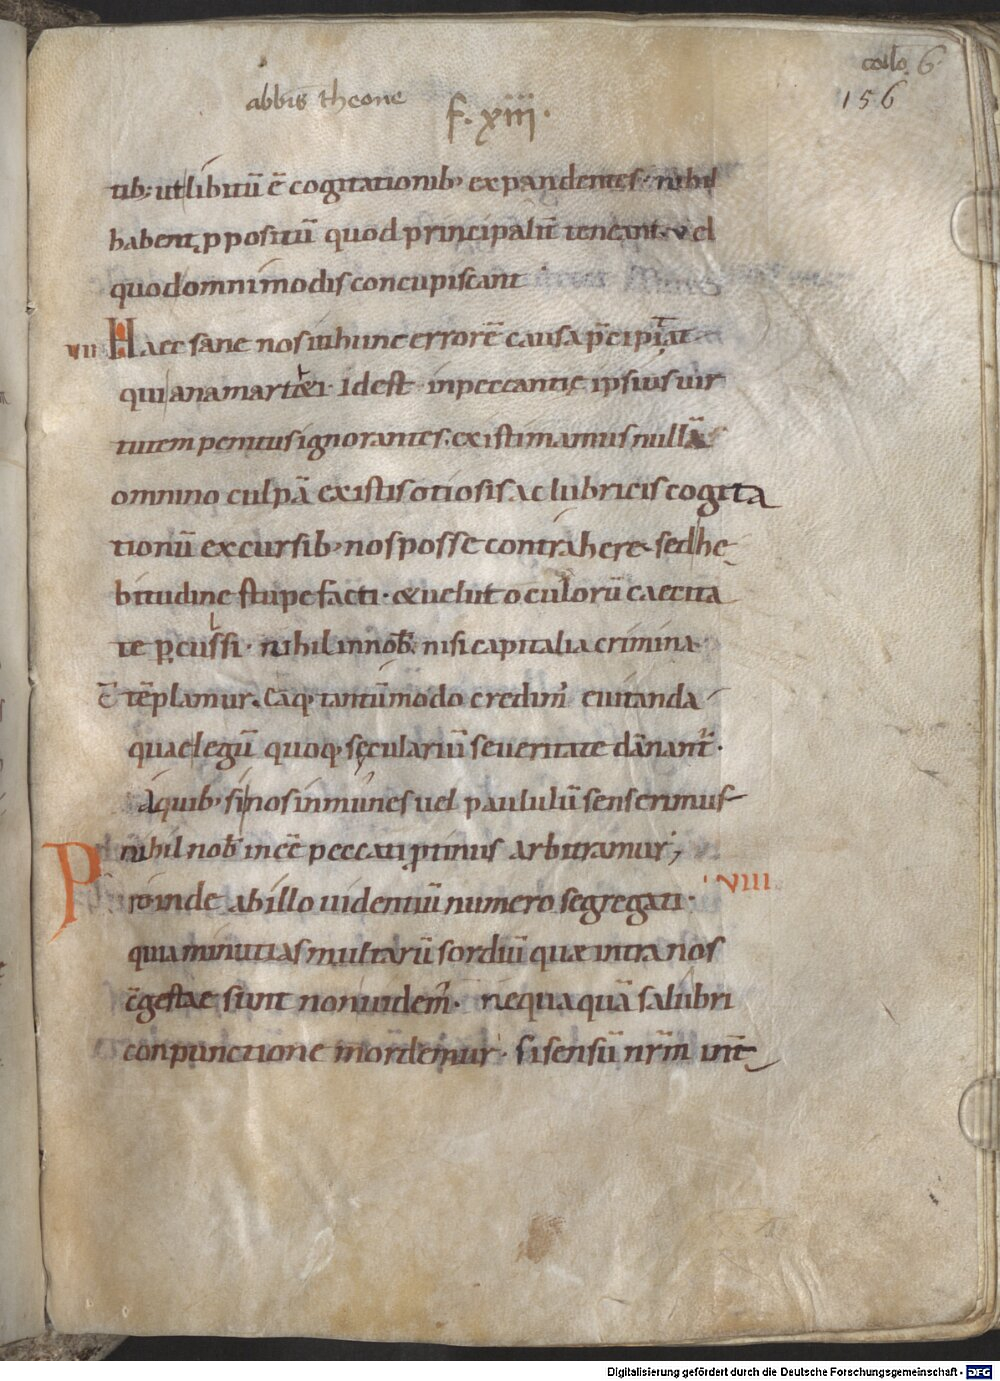 abbis theone
f. xiii.
collo 6
156
tib; ut libitū ē cogitationib; expandentes · nihil
habent ꝓpositū quod principalit̄ teneant · vel
quodommimodis concupiscant
VII Haec sane nos in hunc errorē causa p̄cipitat
qui anamarteti · Idest · inpeccantię ipsius uir
tutem penitus ignorantes, existimamus nullā
omnino culpā ex istis otiosis ac lubricis cogita
tionū excursib; nos posse contrahere · sed he
bitudine stupefacti · & uelut oculorū caecita
te ꝑcussi · nihil in nob̄ nisi capitalia crimina
c̄tēplamur. Eaq; tantūmodo credim̄ euitanda
quae legū quoq; sęculariū seueritate dānant̄ ·
A quib; si nos inmunes uel paululū senserimus
nihil nob̄ in eē peccati ꝓtinus arbitramur;
VIIII
Proinde ab illo uidentiū numero segregati ·
quia minutias multarū sordiū quae intra nos
c̄gestae sunt non uidem̄ · nequaquā salubri
conpunctione mordemur · si sensū nr̄m int̄
Digitalisierung gefördert durch die Deutsche Forschungsgemeinschaft - DFG